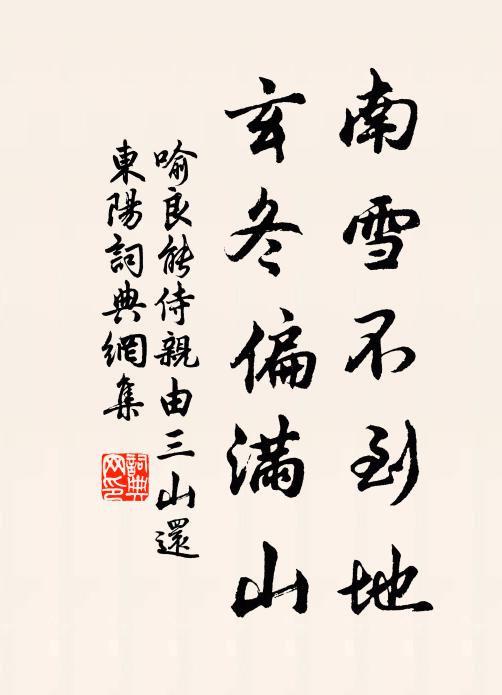 南雪不到地
玄冬偏滿山
喻良能侍親由三山還
東陽詞典網集
詞典网印